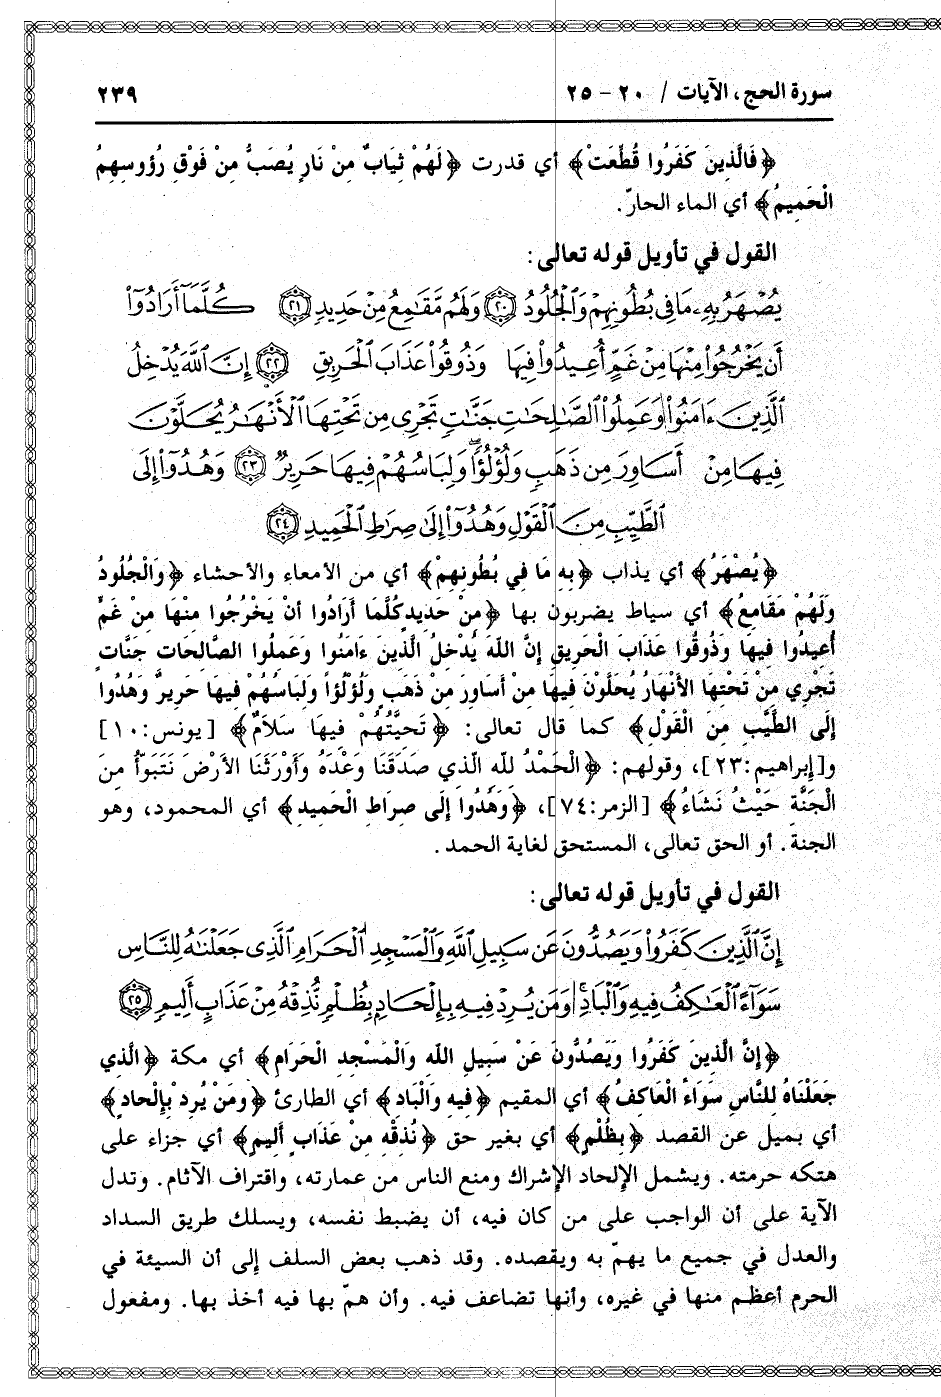 سورة الحج، الآيات / ٢٠ - ٢٥ ٢٣٩
﴿فَالَّذِينَ كَفَرُوا قُطِّعَتْ﴾ أي قدرت ﴿لَهُمْ ثِيَابٌ مِنْ نَارٍ يُصَبُّ مِنْ فَوْقِ رُؤوسِهِمُ
الْحَمِيمُ﴾ أي الماء الحارّ.
القول في تأويل قوله تعالى:
يُصْهَرُ بِهِۦ مَا فِى بُطُونِهِمْ وَٱلْجُلُودُ ﴿٢٠﴾ وَلَهُم مَّقَٰمِعُ مِنْ حَدِيدٍ ﴿٢١﴾ كُلَّمَآ أَرَادُوٓا۟
أَن يَخْرُجُوا۟ مِنْهَا مِنْ غَمٍّ أُعِيدُوا۟ فِيهَا وَذُوقُوا۟ عَذَابَ ٱلْحَرِيقِ ﴿٢٢﴾ إِنَّ ٱللَّهَ يُدْخِلُ
ٱلَّذِينَ ءَامَنُوا۟ وَعَمِلُوا۟ ٱلصَّٰلِحَاتِ جَنَّاتٍ تَجْرِى مِن تَحْتِهَا ٱلْأَنْهَارُ يُحَلَّوْنَ
فِيهَا مِنْ أَسَاوِرَ مِن ذَهَبٍ وَلُؤْلُؤًا ۖ وَلِبَاسُهُمْ فِيهَا حَرِيرٌ ﴿٢٣﴾ وَهُدُوٓا۟ إِلَى
ٱلطَّيِّبِ مِنَ ٱلْقَوْلِ وَهُدُوٓا۟ إِلَىٰ صِرَٰطِ ٱلْحَمِيدِ ﴿٢٤﴾
﴿يُصْهَرُ﴾ أي يذاب ﴿بِهِ مَا فِي بُطُونِهِمْ﴾ أي من الأمعاء والأحشاء ﴿وَالْجُلُودُ
وَلَهُمْ مَقَامِعُ﴾ أي سياط يضربون بها ﴿مِنْ حَدِيدٍ كُلَّمَا أَرَادُوا أَنْ يَخْرُجُوا مِنْهَا مِنْ غَمٍّ
أُعِيدُوا فِيهَا وَذُوقُوا عَذَابَ الْحَرِيقِ إِنَّ اللّهَ يُدْخِلُ الَّذِينَ ءَامَنُوا وَعَمِلُوا الصَّالِحَاتِ جَنَّاتٍ
تَجْرِي مِنْ تَحْتِهَا الأَنْهَارُ يُحَلَّوْنَ فِيهَا مِنْ أَسَاوِرَ مِنْ ذَهَبٍ وَلُؤْلُؤاً وَلِبَاسُهُمْ فِيهَا حَرِيرٌ وَهُدُوا
إِلَى الطَّيِّبِ مِنَ الْقَوْلِ﴾ كما قال تعالى: ﴿تَحِيَّتُهُمْ فِيهَا سَلاَمٌ﴾ [يونس:١٠]
و[إبراهيم:٢٣]، وقولهم: ﴿الْحَمْدُ لله الّذي صَدَقَنَا وَعْدَهُ وَأَوْرَثَنَا الأَرْضَ نَتَبَوَّأُ مِنَ
الْجَنَّةِ حَيْثُ نَشَاءُ﴾ [الزمر:٧٤]، ﴿وَهُدُوا إِلَى صِرَاطِ الْحَمِيدِ﴾ أي المحمود، وهو
الجنة. أو الحق تعالى، المستحق لغاية الحمد.
القول في تأويل قوله تعالى:
إِنَّ ٱلَّذِينَ كَفَرُوا۟ وَيَصُدُّونَ عَن سَبِيلِ ٱللَّهِ وَٱلْمَسْجِدِ ٱلْحَرَامِ ٱلَّذِى جَعَلْنَٰهُ لِلنَّاسِ
سَوَآءً ٱلْعَٰكِفُ فِيهِ وَٱلْبَادِ ۚ وَمَن يُرِدْ فِيهِ بِإِلْحَادٍۭ بِظُلْمٍ نُّذِقْهُ مِنْ عَذَابٍ أَلِيمٍ ﴿٢٥﴾
﴿إِنَّ الَّذِينَ كَفَرُوا وَيَصُدُّونَ عَنْ سَبِيلِ اللّهِ وَالْمَسْجِدِ الْحَرَامِ﴾ أي مكة ﴿الَّذِي
جَعَلْنَاهُ لِلنَّاسِ سَوَاءً الْعَاكِفُ﴾ أي المقيم ﴿فِيهِ وَالْبَادِ﴾ أي الطارئ ﴿وَمَنْ يُرِدْ بِإِلْحَادٍ﴾
أي بميل عن القصد ﴿بِظُلْمٍ﴾ أي بغير حق ﴿نُذِقْهُ مِنْ عَذَابٍ أَلِيمٍ﴾ أي جزاء على
هتكه حرمته. ويشمل الإلحاد الإشراك ومنع الناس من عمارته، واقتراف الآثام. وتدل
الآية على أن الواجب على من كان فيه، أن يضبط نفسه، ويسلك طريق السداد
والعدل في جميع ما يهمّ به ويقصده. وقد ذهب بعض السلف إلى أن السيئة في
الحرم أعظم منها في غيره، وأنها تضاعف فيه. وأن همّ بها فيه أخذ بها. ومفعول